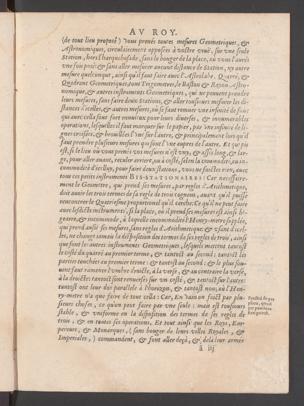 AV ROY.
(de tout lieu proposé) vous prenés toutes mesures Geometriques, &
Astronomiques, circulairement opposées à vostre veuë, sur vne seule
Station, hors l'harquebusade, sans se bouger de la place, où vous l'aurés
vne fois posé: & sans aller mesurer aucune distance de Station, ny autre
mesure quelconque, ainsi qu'il faut faire auec l'Astrolabe, Quarré, &
Quadrant Geometriques, dont l'ingometre, le Baston & Rayon Astro-
nomique, & autres instruments Geometriques, qui ne peuuent prendre
leurs mesures, sans faire deux Stations, & aller tousiours mesurer les di-
stances d'icelles, & autres mesures, où il faut remuer vne infinité de fois
que auec cella sont fort ennuieux pour leurs diuerses, & innumerables
operations, lesquelles il faut marquer sur le papier, par vne infinité de li-
gnes croisées, & brouillées l'vne sur l'autre, & principalement lors qu'il
faut prendre plusieurs mesures qui sont l'vne aupres de l'autre. Et qui pis
est, si le lieu où vous prenés vos mesures n'est vny, & assés long, & lar-
ge, pour aller auant, reculer arriere, ou à costé, selon la commodité, ou in-
commodité d'icelluy, pour faire deux stations, vous ne faictes rien, auec
tous ces petits instruments BIS-STATIONAIRES: Car necessaire-
ment le Geometre, qui prend ses mesures, par regles d'Arithmetique,
doit auoir les trois termes de sa regle de trois cogneus, auant qu'il puisse
rencontrer le Quatriesme proportional qu'il cerche: Ce qu'il ne peut faire
auec lesdicts instruments, si la place, où il prend ses mesures est ainsi bi-
garrée, & incommode, à laquelle incommodité l'Henry-metre supplée,
qui prend aussi ses mesures sans regles d'Arithmetique: & vsant d'icel-
les, ne change iamais la disposition des termes de ses regles de trois, ainsi
que font les autres instruments Geometriques, lesquels mettent tantost
le costé du quarré au premier terme, & tantost au second: tantost les
parties touchées au premier terme: & tantost au second: & le plus sou-
uent faut remettre l'vmbre droicte, à la verse, & au contraire la verse,
à la droicte: tantost sont renuersés sur vn costé, & tantost sur l'autre:
tantost ont leur doz parallele à l'horizon, & tantost non, où l'Hen-
ry-metre n'a que faire de tout cela: Car, En vain on faict par plu-
sieurs choses, ce qu'on peut faire par vne seule: mais est tousiours
stable, & vniforme en la disposition des termes de ses regles de
trois, & en toutes ses operations, Et tout ainsi que les Roys, Em-
pereurs, & Monarques, (sans bouger de leurs villes Royales, &
Imperiales,) commandent, & font aller deçà, & delà leur armée
ã iij